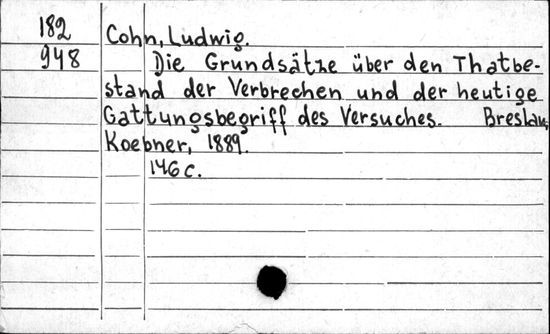 182
948
Cohn, Ludwig.
Die Grundsätze über den Thatbe-
stand der Verbrechen und der heutige
Gattungsbegriff des Versuches. Breslau,
Koebner, 1889.
146 c.